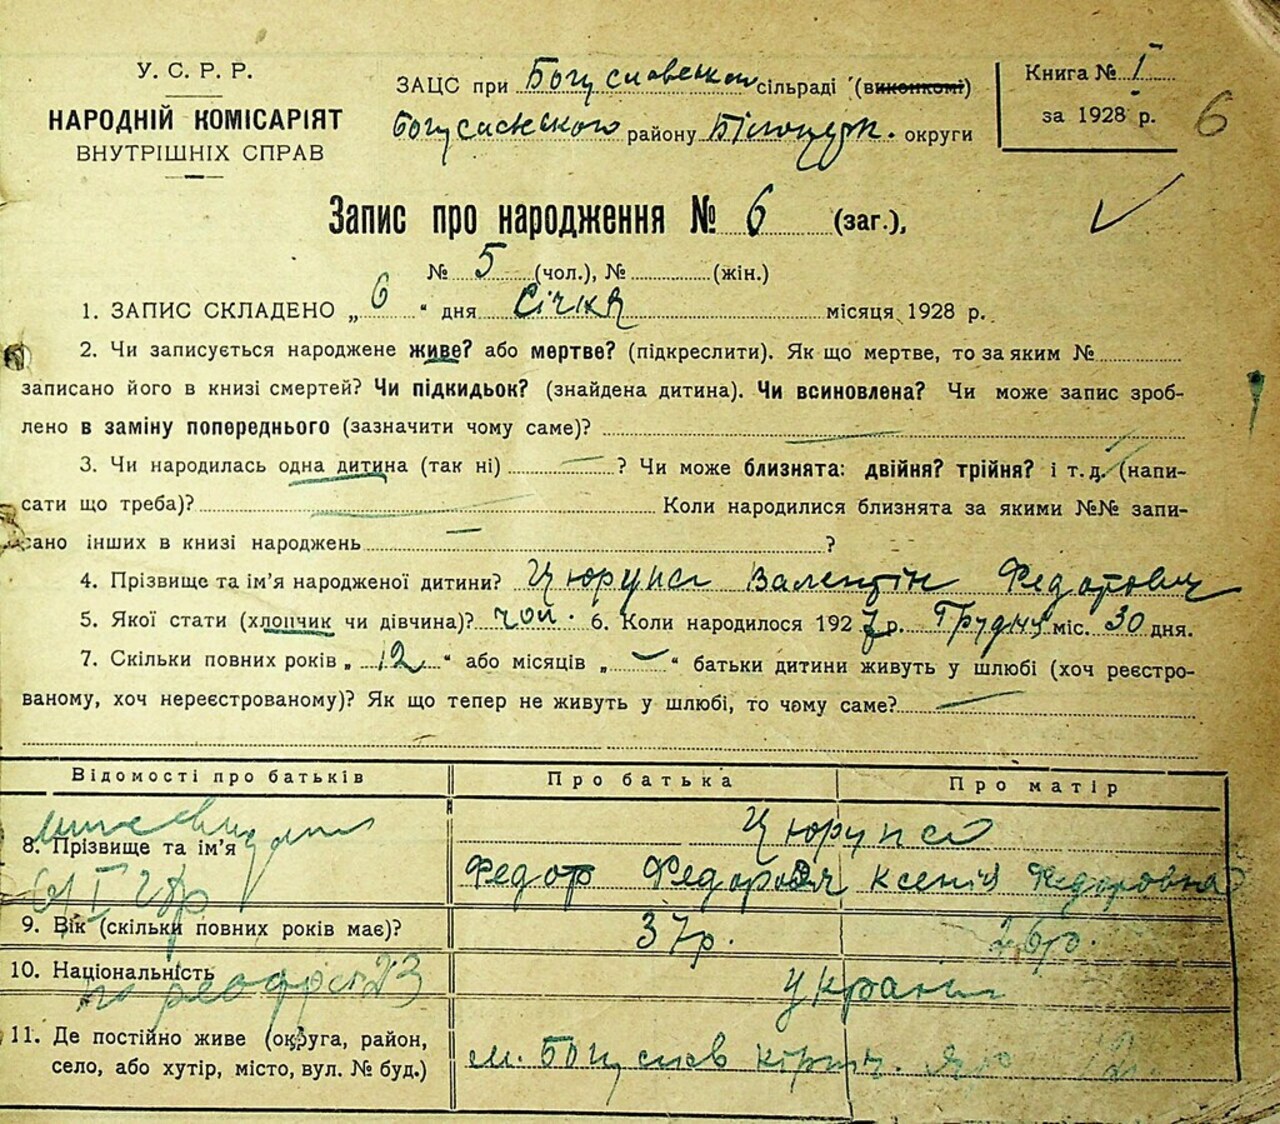 У. С. Р. Р.
НАРОДНІЙ КОМІСАРІЯТ
ВНУТРІШНІХ СПРАВ
ЗАЦС при Богуславській сільраді (виконкомі)
Богуславського району Білоцерк. округи
Книга № I
за 1928 р.
6
Запис про народження № 6 (заг.),
№ 5 (чол.), № (жін.)
1. ЗАПИС СКЛАДЕНО „ 6 “ дня Січня місяця 1928 р.
2. Чи записується народжене живе? або мертве? (підкреслити). Як що мертве, то за яким №
записано його в книзі смертей? Чи підкидьок? (знайдена дитина). Чи всиновлена? Чи може запис зроб-
лено в заміну попереднього (зазначити чому саме)?
3. Чи народилась одна дитина (так ні) — ? Чи може близнята: двійня? трійня? і т. д. (напи-
сати що треба)? Коли народилися близнята за якими №№ запи-
сано інших в книзі народжень — ?
4. Прізвище та ім'я народженої дитини? Цюрупа Валентін Федорович
5. Якої стати (хлопчик чи дівчина)? чол. 6. Коли народилося 1927 р. Грудня міс. 30 дня.
7. Скільки повних років „ 12 “ або місяців „ — “ батьки дитини живуть у шлюбі (хоч реєстро-
ваному, хоч нереєстрованому)? Як що тепер не живуть у шлюбі, то чому саме? —
Відомості про батьків Про батька Про матір
8. Прізвище та ім'я Цюрупа
Федор Федорович Ксенія Федоровна
9. Вік (скільки повних років має)? 37 р. 26 р.
10. Національність україн
11. Де постійно живе (округа, район,
село, або хутір, місто, вул. № буд.) м. Богуслав